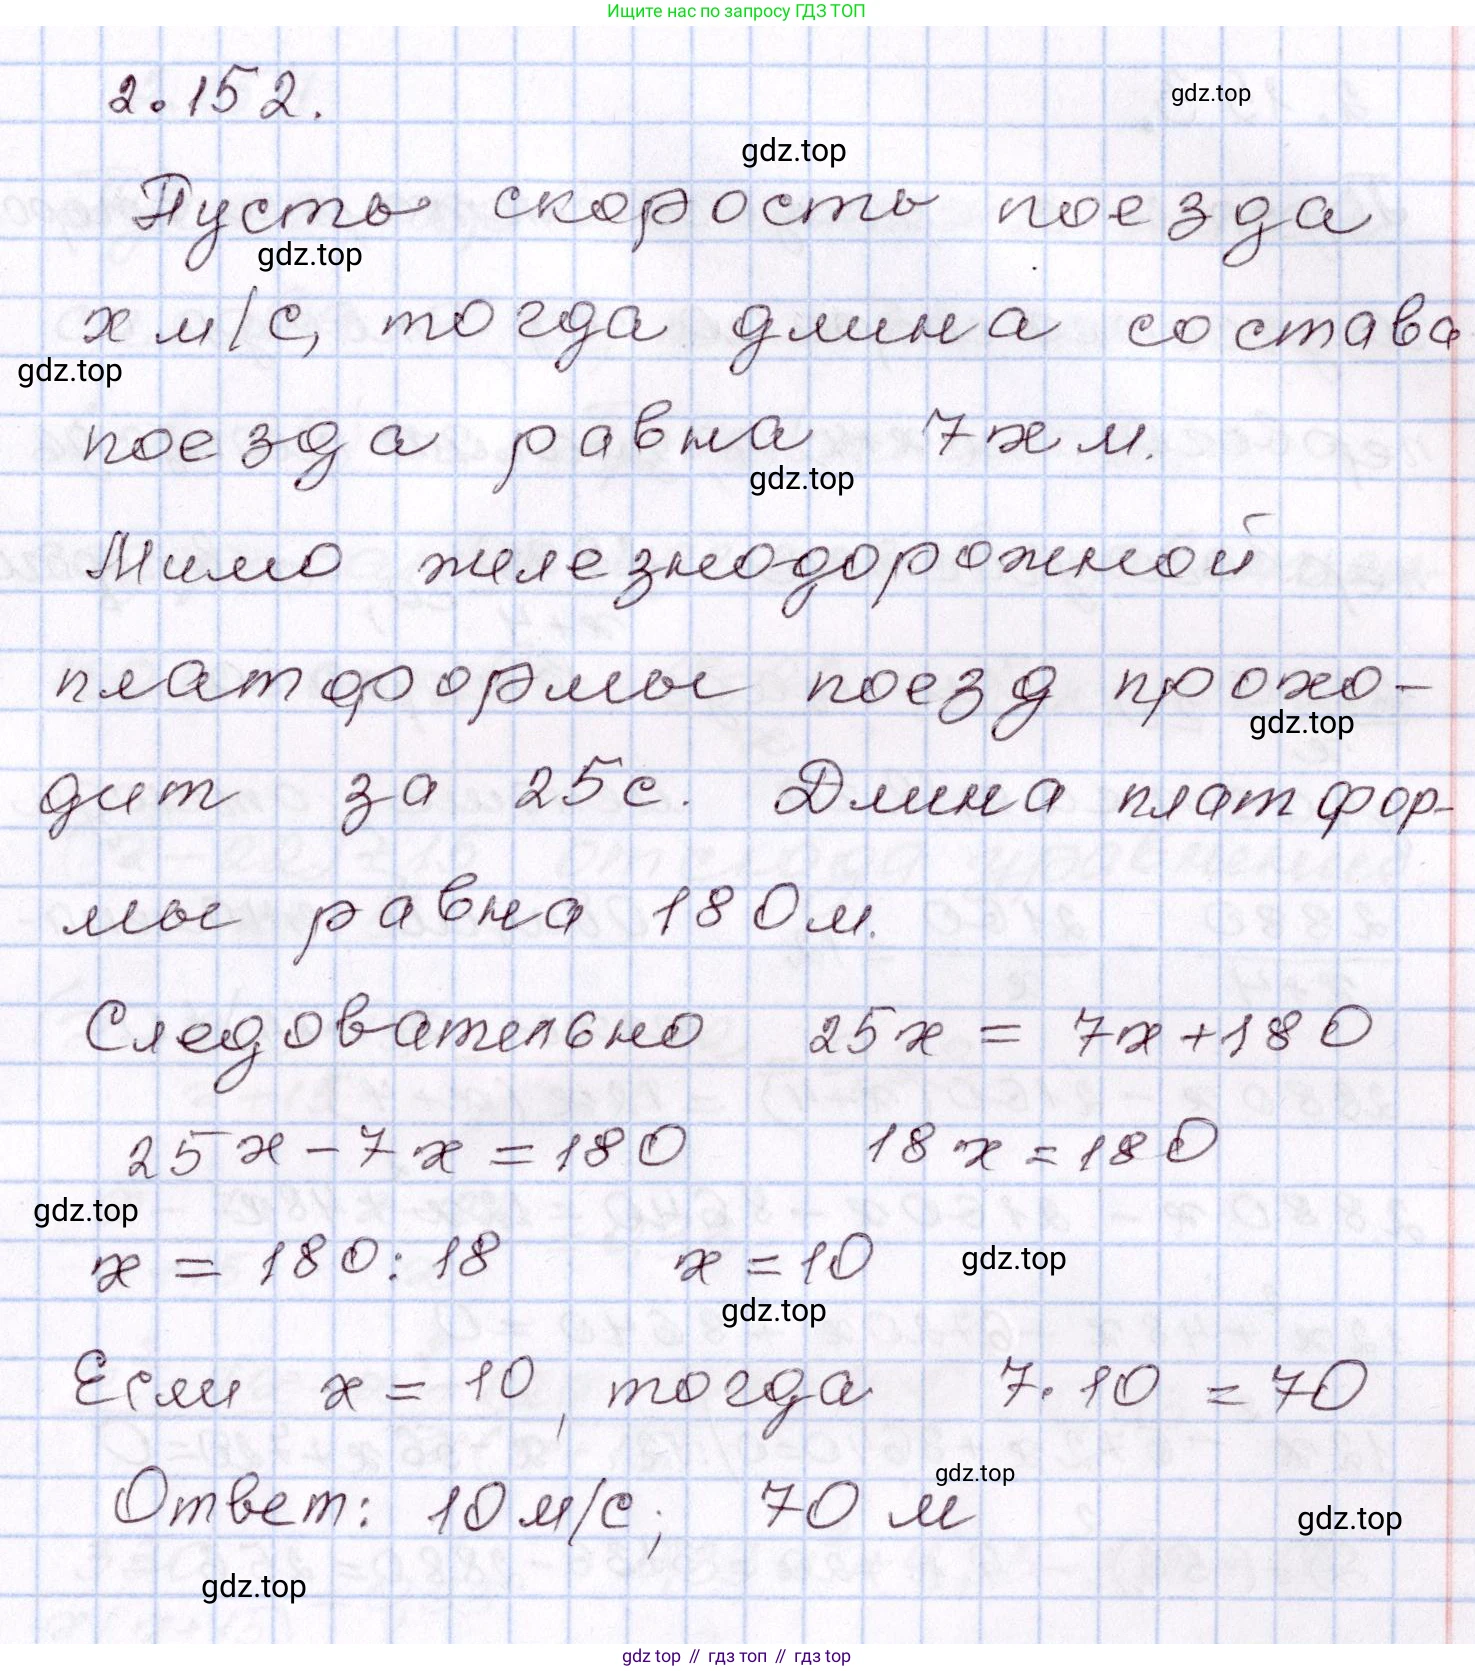 Ищите нас по запросу ГДЗ ТОП
2.152.
gdz.top
gdz.top
Пусть скорость поезда
gdz.top
х м/с, тогда длина состава
gdz.top
поезда равна 7х м.
gdz.top
Мимо железнодорожной
платформы поезд прохо-
gdz.top
дит за 25 с. Длина платфор-
мы равна 180 м.
Следовательно 25х = 7х + 180
25х - 7х = 180 18х = 180
gdz.top
х = 180 : 18 х = 10
gdz.top
gdz.top
Если х = 10, тогда 7 · 10 = 70
gdz.top
Ответ: 10 м/с; 70 м
gdz.top
gdz.top
gdz top // гдз топ // gdz top